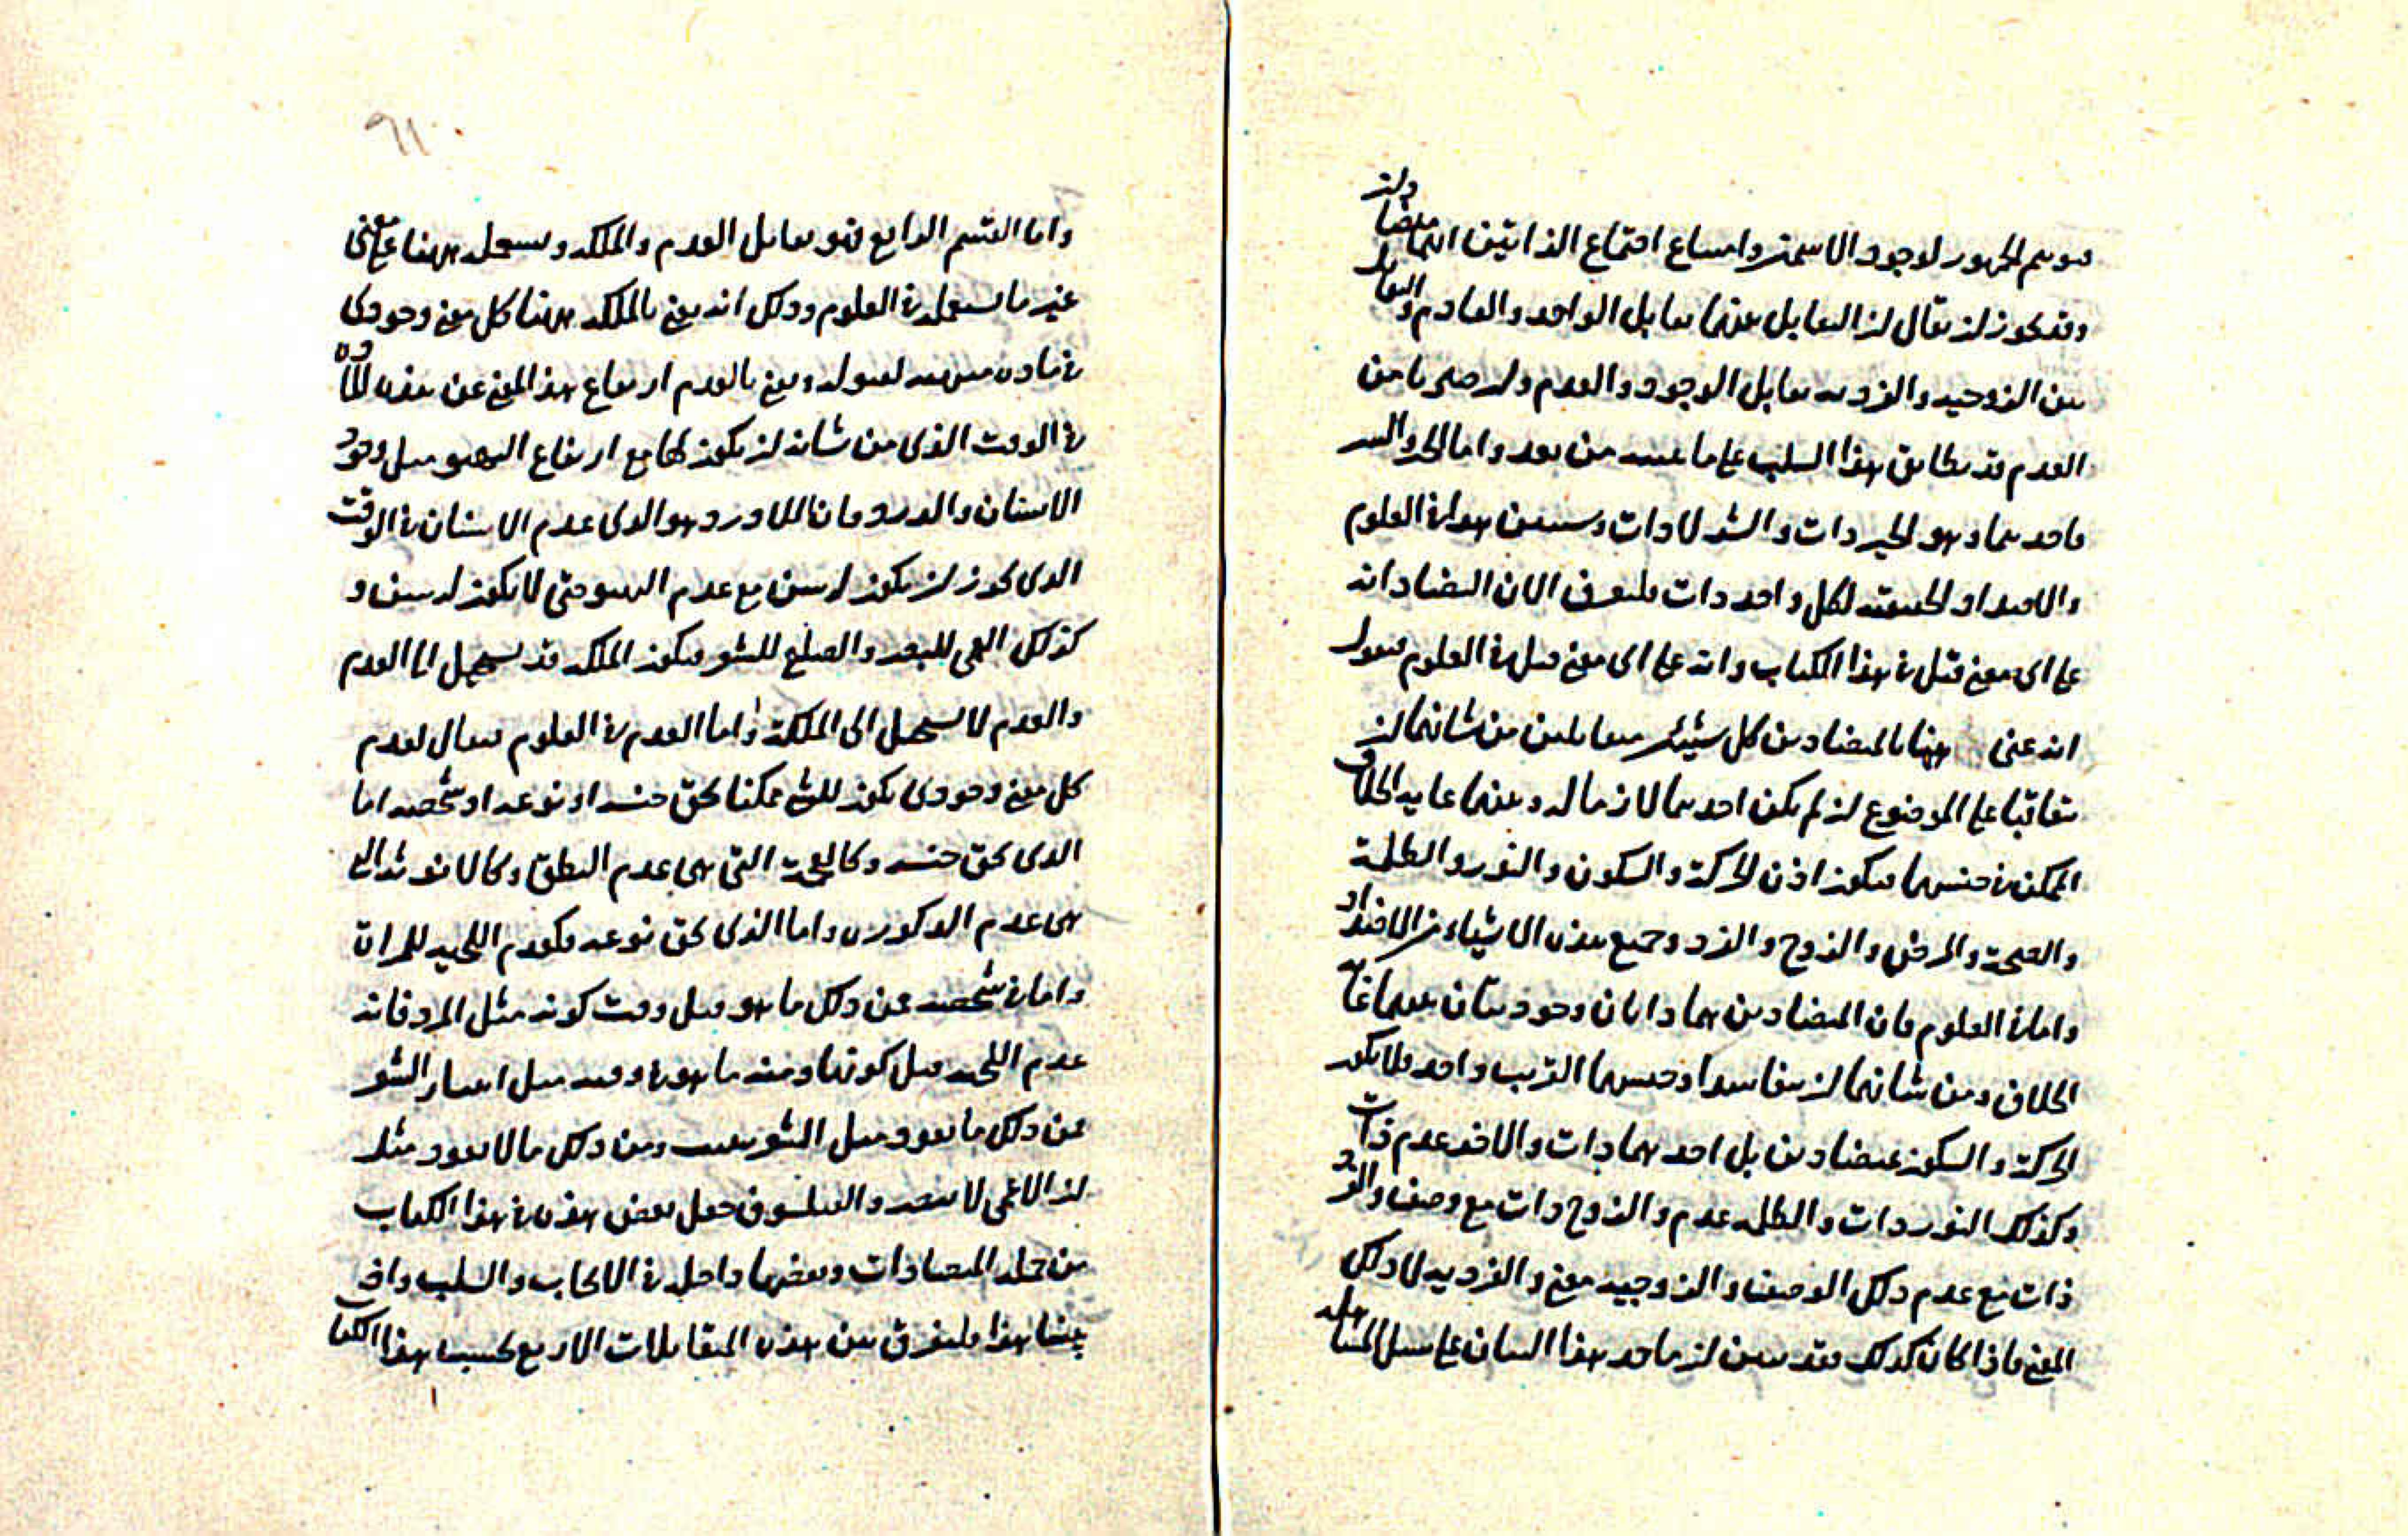 فيوهم الجمهور لوجود الاسمين وامتناع اجتماع الذاتين انهما متضادان
وقد يجوز ان يقال ان التقابل بينهما تقابل الواحد والعادم والتقابل
بين الزوجية والفردية تقابل الوجود والعدم
العدم قد يطابق هذا السلب على ما من بعد واما الخير والشر
فاحدهما وهو الخير ذات والشر لا ذات وسيبين هذا في العلوم
والاضداد الحقيقية لكل واحد ذات فليعرف الان التضاد انه
على اى معنى قيل في هذا الكتاب وانه على اى معنى قيل في العلوم فنقول
انه عنى ههنا بالمتضادين كل شيئين متقابلين من شانهما ان
يتعاقبا على الموضوع ان لم يكن احدهما لازما له وبينهما غاية الخلاف
الممكن في جنسهما فيكون اذن الحركة والسكون والنور والظلمة
والصحة والمرض والزوج والفرد وجميع هذه الاشياء من الاضداد
واما في العلوم فان المتضادين هما ذاتان وجوديتان بينهما غاية
الخلاف ومن شانهما ان وجنسهما القريب واحد فلا يكون
الحركة والسكون متضادين بل احدهما ذات والاخر عدم ذات
وكذلك النور ذات والظلمة عدم والزوج ذات مع وصف والفرد
ذات مع عدم ذلك الوصف والزوجية معنى والفردية لا ذلك
المعنى فاذا كان كذلك فقد تبين ان ماخذ هذا البيان على سبيل المساهلة
٩١
واما القسم الرابع فهو تقابل العدم والملكة ويستعمله ههنا على معنى
غير ما يستعمله في العلوم وذلك انه يعنى بالملكة ههنا كل معنى وجودى
في مادة لقبوله ويعنى بالعدم ارتفاع هذا المعنى عن هذه المادة
في الوقت الذى من شانه ان يكون لها مع ارتفاع التهيؤ مثل وجود
الاسنان والدرد فان الادرد هو الذى عدم الاسنان في الوقت
الذى يجوز ان يكون له سن مع عدم التهيؤ حتى لا يكون له سن و
كذلك العمى للبصر والصلع للشعر فيكون الملكة قد تستحيل الى العدم
والعدم لا يستحيل الى الملكة واما العدم في العلوم فيقال لعدم
كل معنى وجودى يكون للشى ممكنا بحق جنسه او نوعه او شخصه اما
الذى بحق جنسه فكالعجمة التى هى عدم النطق وكالانوثة التى
هى عدم الذكورة واما الذى بحق نوعه فكعدم اللحية للمراة
واما في شخصه فمن ذلك ما هو قبل وقت كونه مثل المرد فانه
عدم اللحية قبل كونها ومنه ما هو في وقته مثل انتثار الشعر
فمن ذلك ما يعود مثل الشعر ومن ذلك ما لا يعود مثل
ان الاعمى لا يبصر والفيلسوف جعل بعض هذه في هذا الكتاب
من جملة المتضادات وبعضها داخلة في الايجاب والسلب واذ
بينا هذا فليفرق بين هذه المتقابلات الاربع بحسب هذا الكتاب